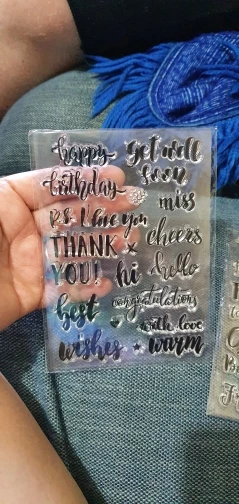 happy
birthday
get well
soon
miss
P.S. I love you
cheers
THANK
YOU!
hi
hello
best
congratulations
with love
wishes
warm